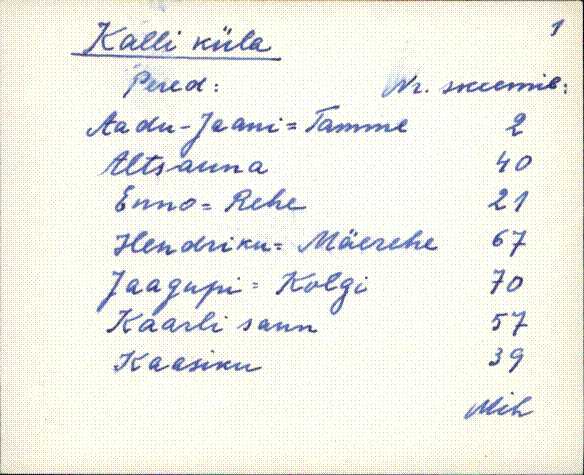 1
Kalli küla
Pered: Nr. skeemil:
Aadu-Jaani = Tamme 2
Altsauna 40
Enno = Rehe 21
Hendriku = Mäerehe 67
Jaagupi = Kolgi 70
Kaarli saun 57
Kaasiku 39
Mih